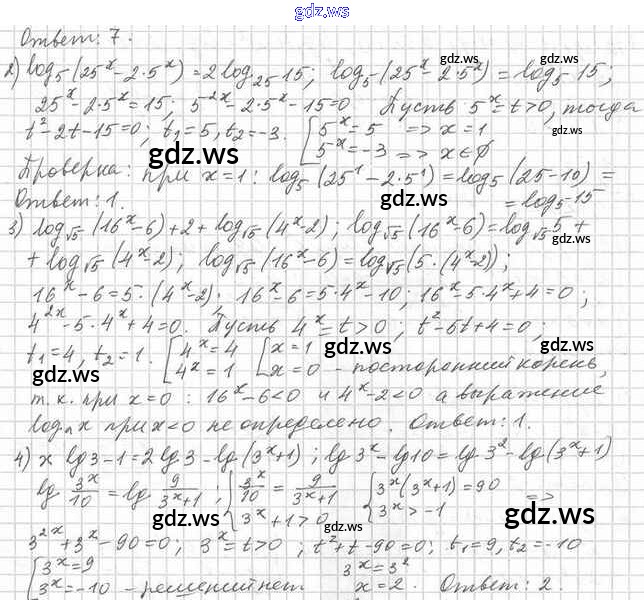 gdz.ws
gdz.ws
Ответ: 7.
2) log₅(25ˣ - 2·5ˣ) = 2log₂₅15; log₅(25ˣ - 2·5ˣ) = log₅15;
25ˣ - 2·5ˣ = 15; 5²ˣ - 2·5ˣ - 15 = 0 Пусть 5ˣ = t > 0, тогда
t² - 2t - 15 = 0; t₁ = 5, t₂ = -3. [5ˣ = 5 => x = 1
5ˣ = -3 => x ∈ ∅
Проверка: при x = 1: log₅(25¹ - 2·5¹) = log₅(25 - 10) =
= log₅15
Ответ: 1.
3) log√5(16ˣ - 6) = 2 + log√5(4ˣ - 2); log√5(16ˣ - 6) = log√5 5 +
+ log√5(4ˣ - 2); log√5(16ˣ - 6) = log√5(5·(4ˣ - 2));
16ˣ - 6 = 5·(4ˣ - 2); 16ˣ - 6 = 5·4ˣ - 10; 16ˣ - 5·4ˣ + 4 = 0;
4²ˣ - 5·4ˣ + 4 = 0. Пусть 4ˣ = t > 0; t² - 5t + 4 = 0;
t₁ = 4, t₂ = 1. [4ˣ = 4 [x = 1
4ˣ = 1 x = 0 - посторонний корень,
т.к. при x = 0: 16ˣ - 6 < 0 и 4ˣ - 2 < 0 а выражение
logₐx при x < 0 не определено. Ответ: 1.
4) x lg3 - 1 = 2lg3 - lg(3ˣ + 1); lg3ˣ - lg10 = lg3² - lg(3ˣ + 1)
lg 3ˣ/10 = lg 9/(3ˣ + 1); {3ˣ/10 = 9/(3ˣ + 1) {3ˣ(3ˣ + 1) = 90 =>
3ˣ + 1 > 0 3ˣ > -1
3²ˣ + 3ˣ - 90 = 0; 3ˣ = t > 0; t² + t - 90 = 0; t₁ = 9, t₂ = -10
[3ˣ = 9 3ˣ = 3²
3ˣ = -10 - решений нет x = 2. Ответ: 2.
gdz.ws
gdz.ws
gdz.ws
gdz.ws
gdz.ws
gdz.ws
gdz.ws
gdz.ws
gdz.ws
gdz.ws
gdz.ws